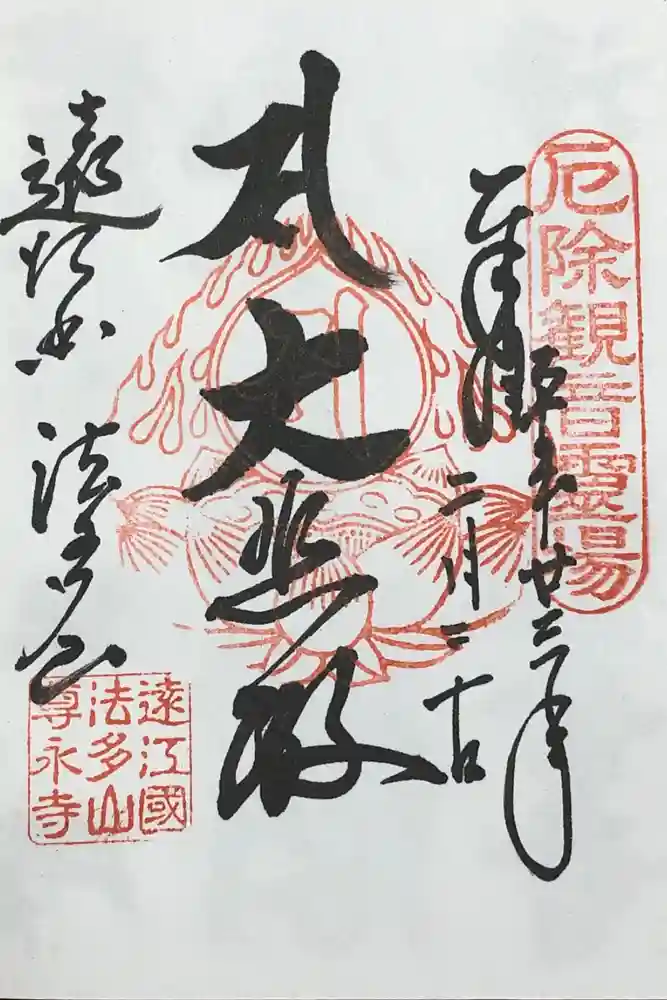 厄除観音靈場
奉拝
平成廿三年
二月二十日
大悲殿
遠江州 法多山
遠江國
法多山
尊永寺